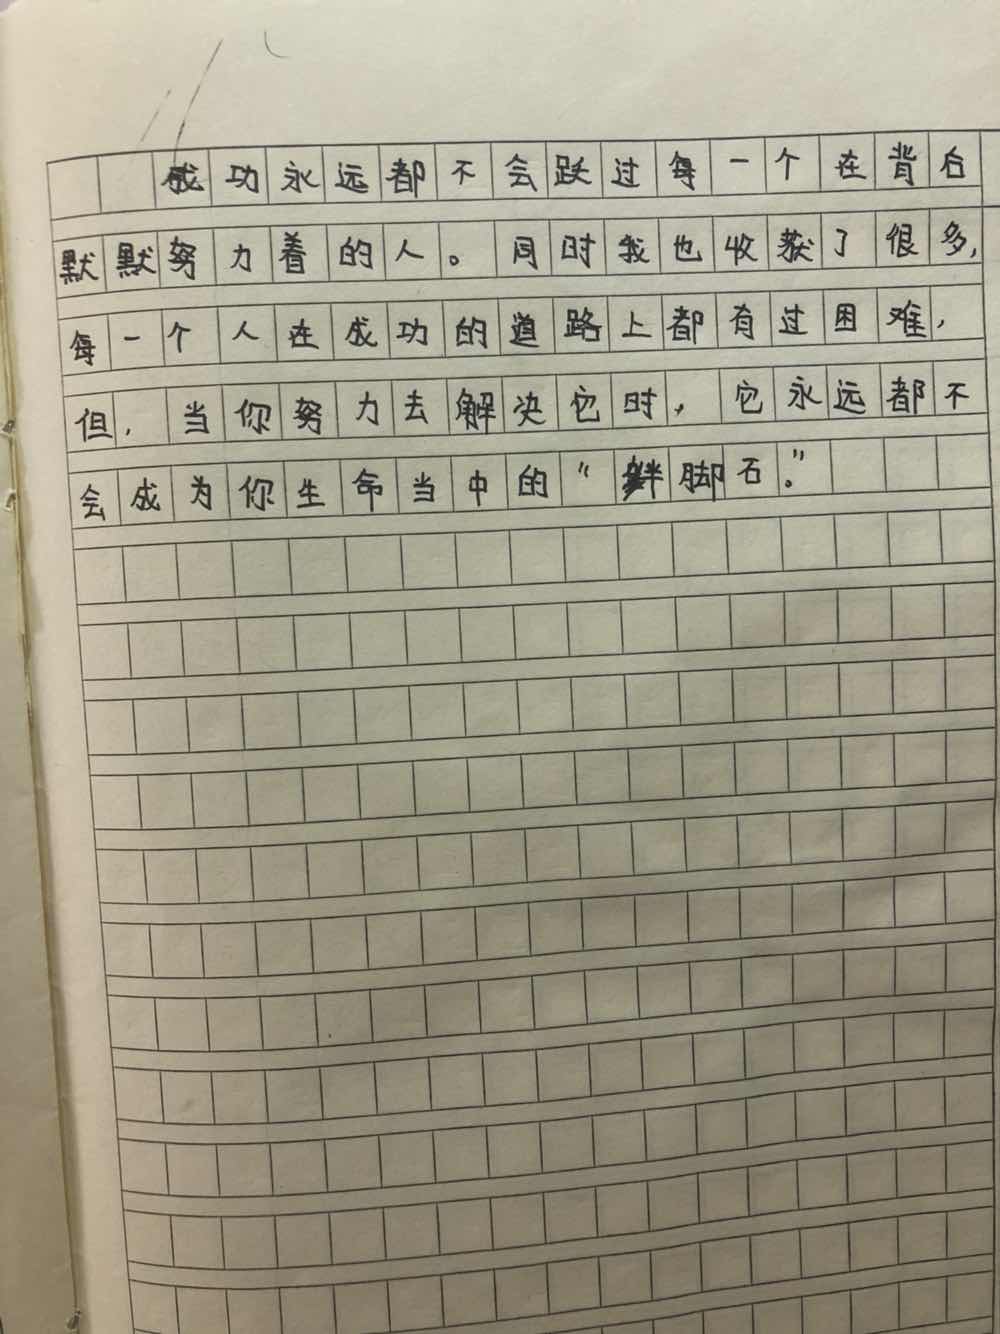 成功永远都不会跃过每一个在背后
默默努力着的人。同时我也收获了很多,
每一个人在成功的道路上都有过困难,
但,当你努力去解决它时,它永远都不
会成为你生命当中的“绊脚石。”